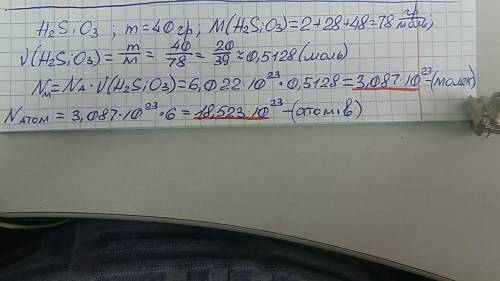 H₂SiO₃ ; m=40гр, M(H₂SiO₃)=2+28+48=78 гр/моль,
√(H₂SiO₃) = m/м = 40/78 = 20/39 ≈ 0,5128 (моль)
Nм=Nᴀ·√(H₂SiO₃)=6,022·10²³·0,5128=3,087·10²³-(молек)
Nатом = 3,087·10²³·6=18,523·10²³-(атомів)